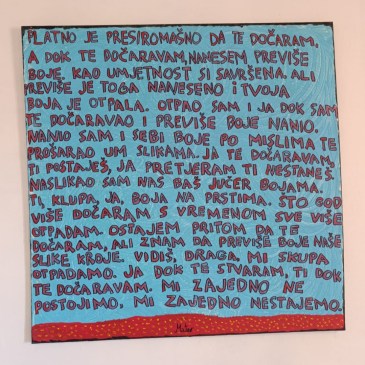 PLATNO JE PRESIROMAŠNO DA TE DOČARAM,
A DOK TE DOČARAVAM, NANESEM PREVIŠE
BOJE, KAO UMJETNOST SI SAVRŠENA, ALI
PREVIŠE JE TOGA NANESENO I TVOJA
BOJA JE OTPALA. OTPAO SAM I JA DOK SAM
TE DOČARAVAO I PREVIŠE BOJE NANIO.
NANIO SAM I SEBI BOJE PO MISLIMA TE
PROŠARAO UM SLIKAMA. JA TE DOČARAVAM,
TI POSTAJEŠ, JA PRETJERAM TI NESTANEŠ.
NASLIKAO SAM NAS BAŠ JUČER BOJAMA.
TI, KLUPA, JA, BOJA NA PRSTIMA. ŠTO GOD
VIŠE DOČARAM S VREMENOM SVE VIŠE
OTPADAM. OSTAJEM PRITOM DA TE
DOČARAM, ALI ZNAM DA PREVIŠE BOJE NAŠE
SLIKE KROJE. VIDIŠ, DRAGA, MI SKUPA
OTPADAMO. JA DOK TE STVARAM, TI DOK
TE DOČARAVAM. MI ZAJEDNO NE
POSTOJIMO, MI ZAJEDNO NESTAJEMO.